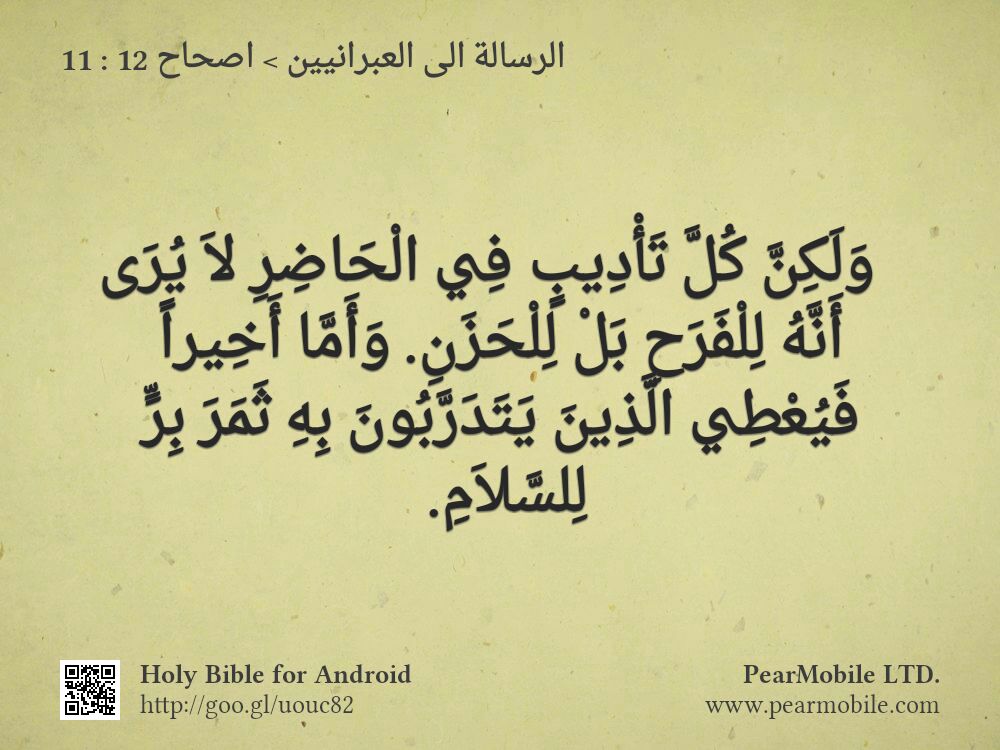 الرسالة الى العبرانيين > اصحاح 12 : 11
وَلَكِنَّ كُلَّ تَأْدِيبٍ فِي الْحَاضِرِ لاَ يُرَى
أَنَّهُ لِلْفَرَحِ بَلْ لِلْحَزَنِ. وَأَمَّا أَخِيراً
فَيُعْطِي الَّذِينَ يَتَدَرَّبُونَ بِهِ ثَمَرَ بِرٍّ
لِلسَّلاَمِ.
Holy Bible for Android
http://goo.gl/uouc82
PearMobile LTD.
www.pearmobile.com